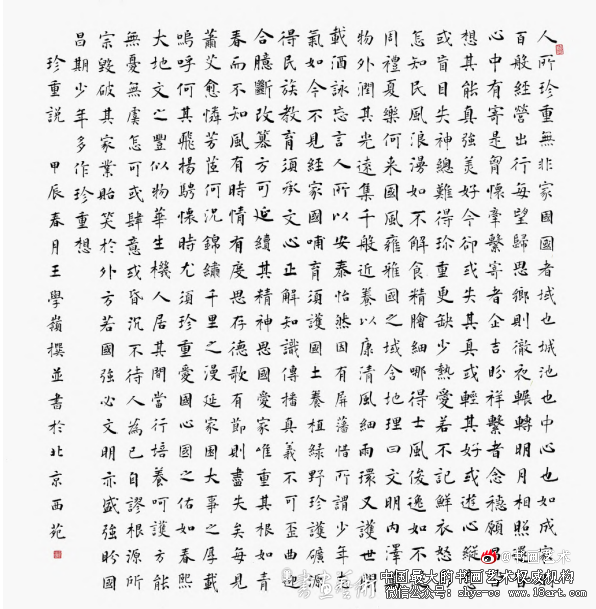 人所珍重無非家國國者域也城池也中心也如成家
百般經營出行每望歸思鄉則徹夜輾轉明月相照晨昏
心中有寄是胷懷牽繫寄者企吉盼祥繫者念穗願昌
想其能真強美好今卻或失其真或輕其好或遊心縱
或盲目失神總難得珍重更缺少熱愛若不記鮮衣怒
怎知民風浪漫如不解食精膾細哪得士風俊逸如不
周禮夏樂何来國風雍雅國之域合地理曰文明内澤
物外潤其光遠集千般近養以康清風細雨環又護世間
載酒詠忘言人所以安泰怡然因有屏藩惜所謂少年志
氣如今不見經家國哺育須護國土養植綠野珍護礦源
得民族教育須承文心正解知識傳播真義不可歪曲迎
合臆斷改纂方可延續其精神思國愛家唯重其根如青
春而不知風有時情有度思存德歌有節則盡失矣每見
蕭艾愈憐芳茝何況錦繡千里之漫延國大事之厚載
嗚呼何其飛揚騁懷時尤須珍重愛國心國之佑如春熙
大地文之豐似物華生機人居其間當行培養呵護方能
無憂無虞怎可或肆意或昏沉不待人為已自謬根源所
宗毀破其家業貽笑於外方若國強必文明亦盛強盼國
昌期少年多作珍重想
珍重説 甲辰春月王學嶺撰並書於北京西苑
書畫藝術
@书画艺术
中国最大的书画艺术权威机构
微信公众号：shys-cc www.18art.com